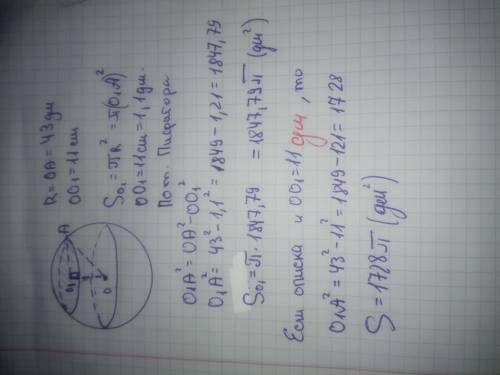 R = OA = 43 дм
OO₁ = 11 см
A
O₁
O
S₀₁ = πR² = π(O₁A)²
OO₁ = 11 см = 1,1 дм.
По т. Пифагора
O₁A² = OA² - OO₁²
O₁A² = 43² - 1,1² = 1849 - 1,21 = 1847,79
S₀₁ = π · 1847,79 = 1847,79 π (дм²)
Если описка и OO₁ = 11 дм, то
O₁A² = 43² - 11² = 1849 - 121 = 1728
S = 1728 π (дм²)